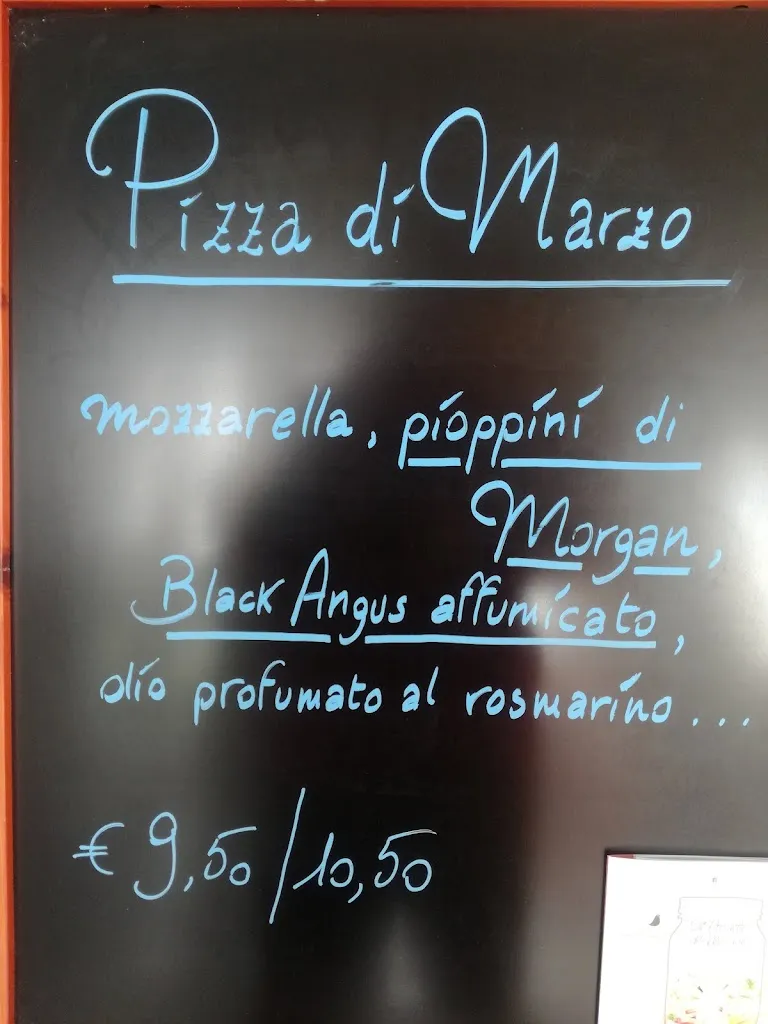 Pizza di Marzo
mozzarella, pioppini di
Morgan,
Black Angus affumicato,
olio profumato al rosmarino...
€ 9,50/10,50